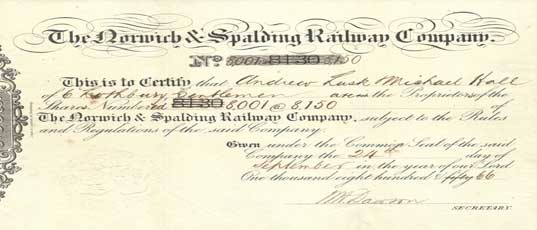 The Norwich & Spalding Railway Company.
No. 8,001 8130 8150
This is to Certify that Andrew Lusk Michael Hall
of 6 Lothbury Gentlemen are the Proprietors of the
Shares Numbered 8130 8,001 @ 8,150 of
The Norwich & Spalding Railway Company, subject to the Rules
and Regulations of the said Company.
Given under the Common Seal of the said
Company the 24th day of
September in the year of our Lord
One thousand eight hundred & fifty 66
SECRETARY.